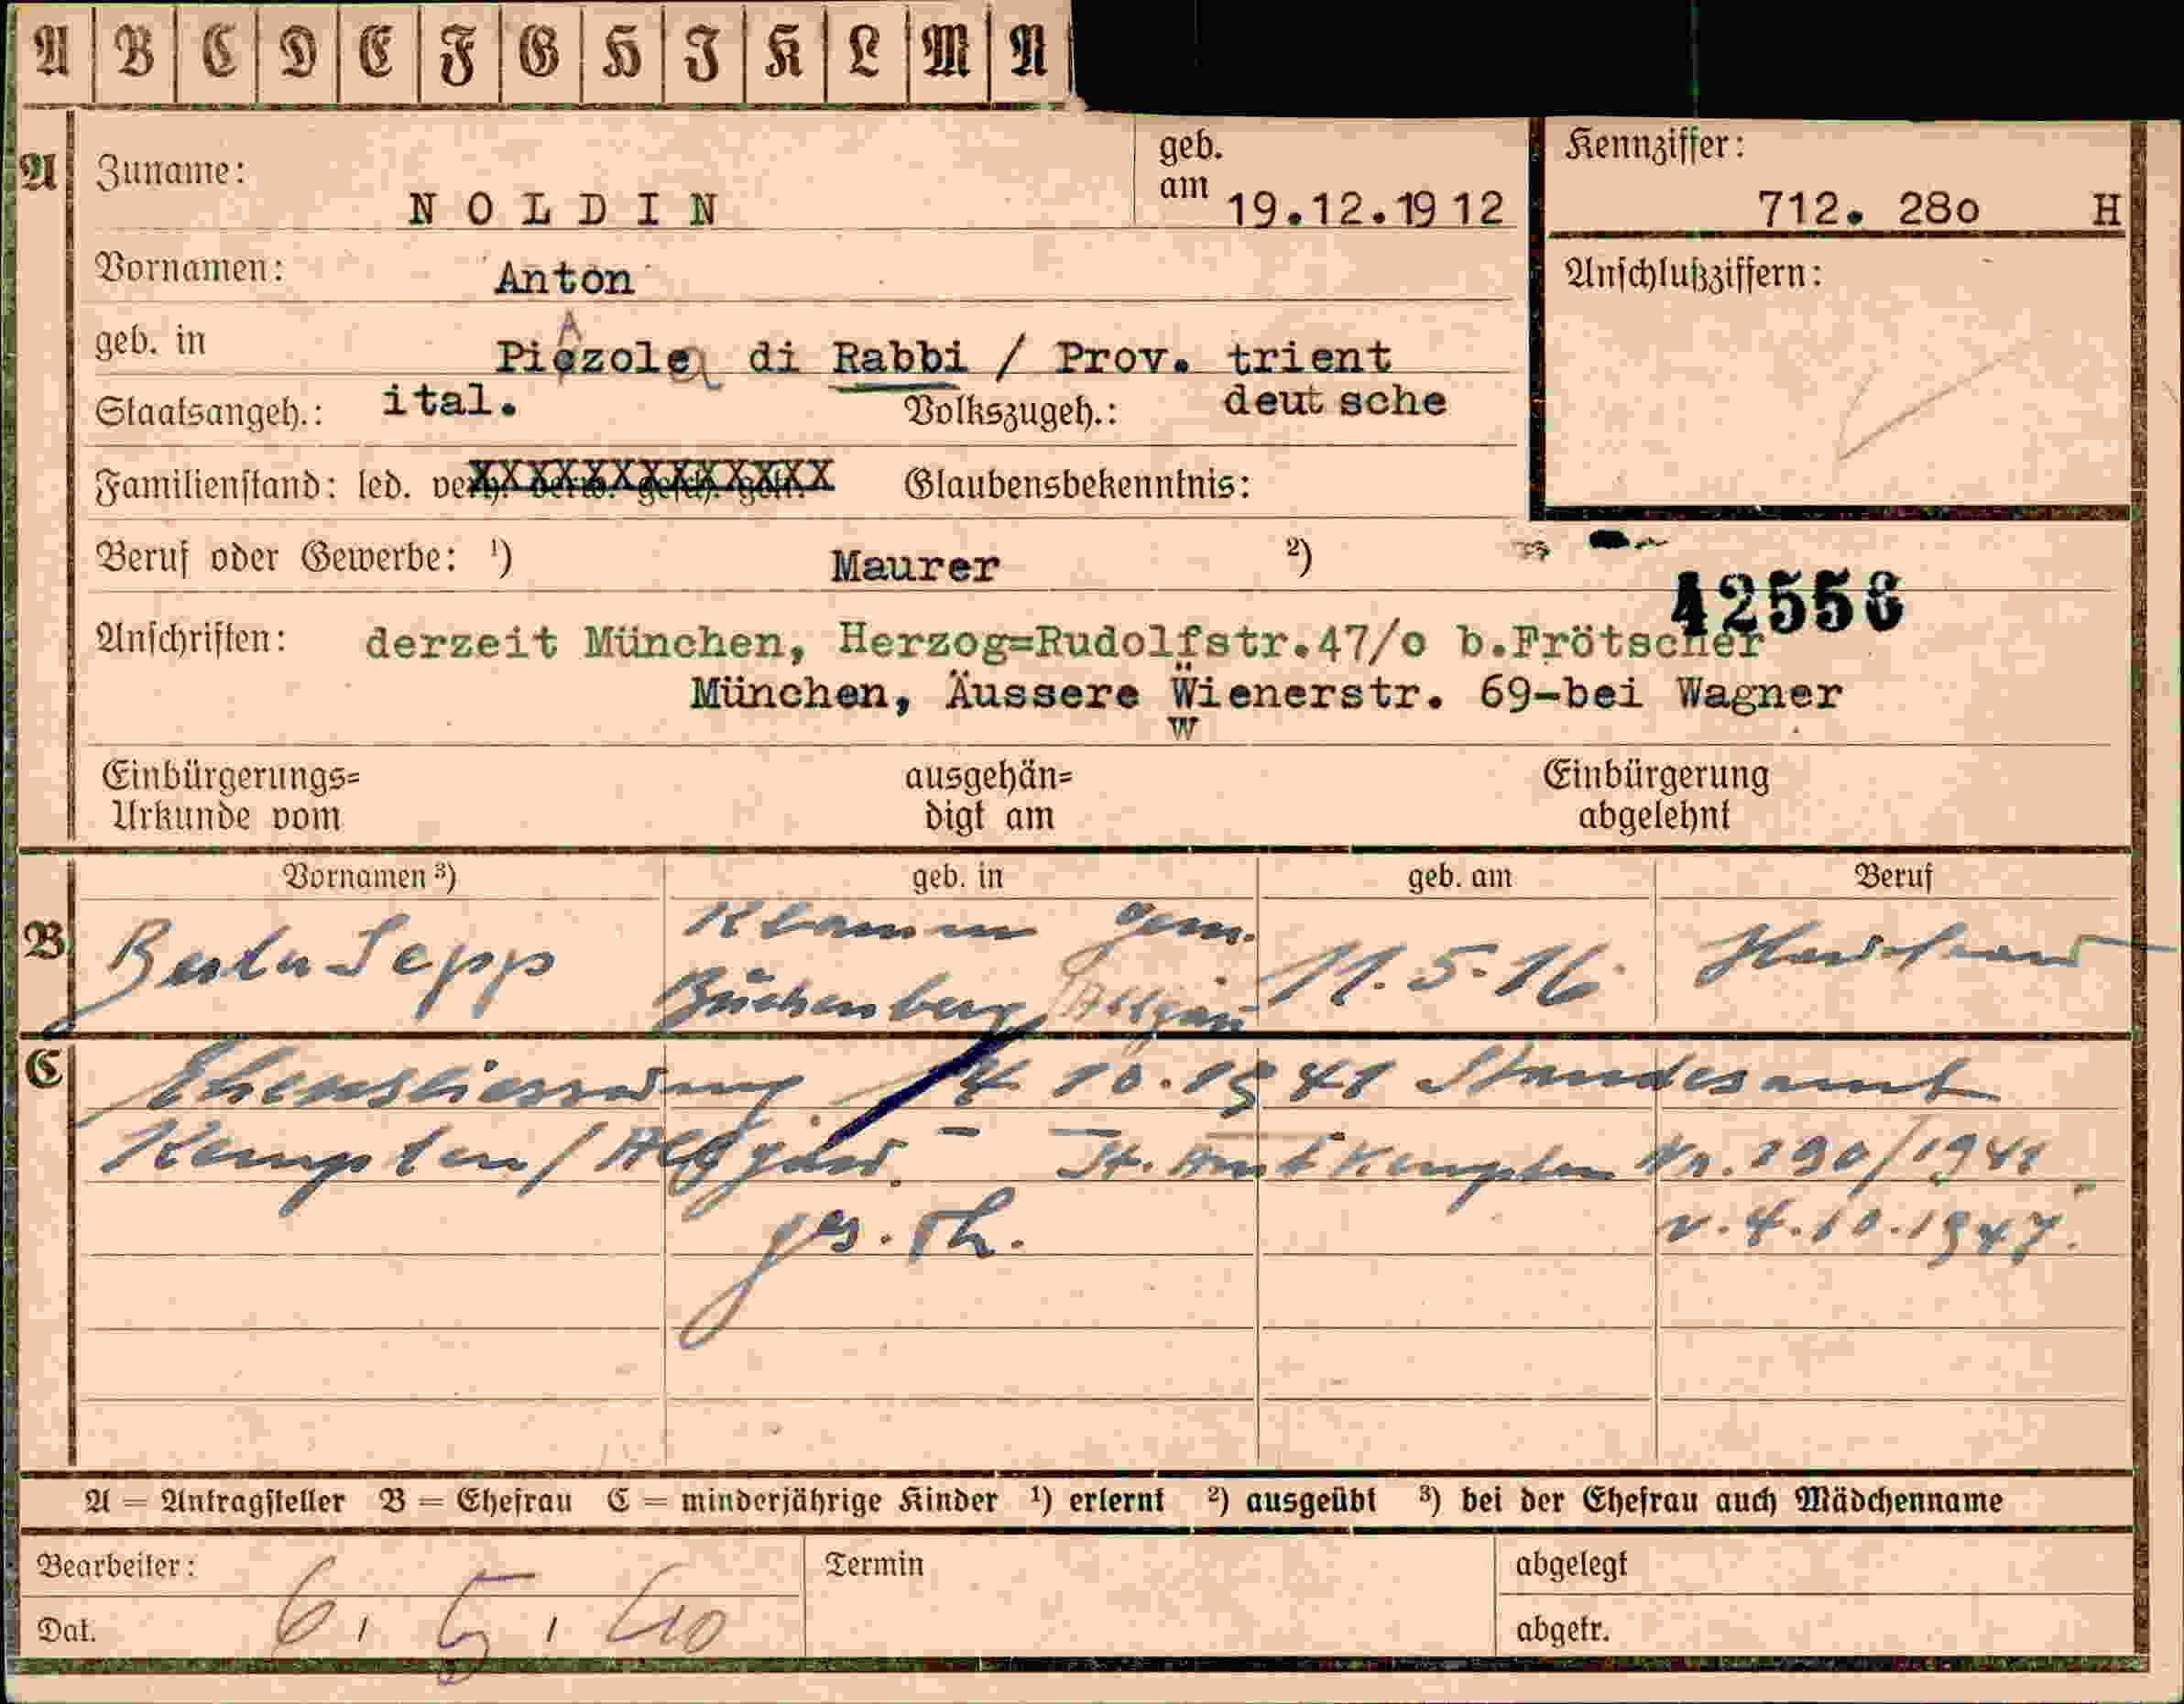 A B C D E F G H I K L M N
A Zuname: NOLDIN geb. am 19.12.1912 Kennziffer: 712. 280 H
Vornamen: Anton Anschlußziffern:
A
geb. in Piezole di Rabbi / Prov. trient
Staatsangeh.: ital. Volkszugeh.: deut sche
Familienstand: led. verh. verw. gesch. getr. Glaubensbekenntnis:
XXXXXXXXXXXXX
Beruf oder Gewerbe: ¹) Maurer ²)
42556
Anschriften: derzeit München, Herzog=Rudolfstr.47/o b.Frötscher
München, Äussere Wienerstr. 69-bei Wagner
W
Einbürgerungs= ausgehän= Einbürgerung
Urkunde vom digt am abgelehnt
Vornamen ³) geb. in geb. am Beruf
Klamm Gem.
B Berta Sepp 11.5.16 Hausfrau
Buchenberg Allgäu
C Eheschliessung 4. 10. 1941 Standesamt
Kempten / Allgäu. – St. Amt Kempten Nr. 290/1941
v. 4.10.1941.
A = Antragsteller B = Ehefrau C = minderjährige Kinder ¹) erlernt ²) ausgeübt ³) bei der Ehefrau auch Mädchenname
Bearbeiter: Termin abgelegt
Dat. 6. 5. 40 abgetr.